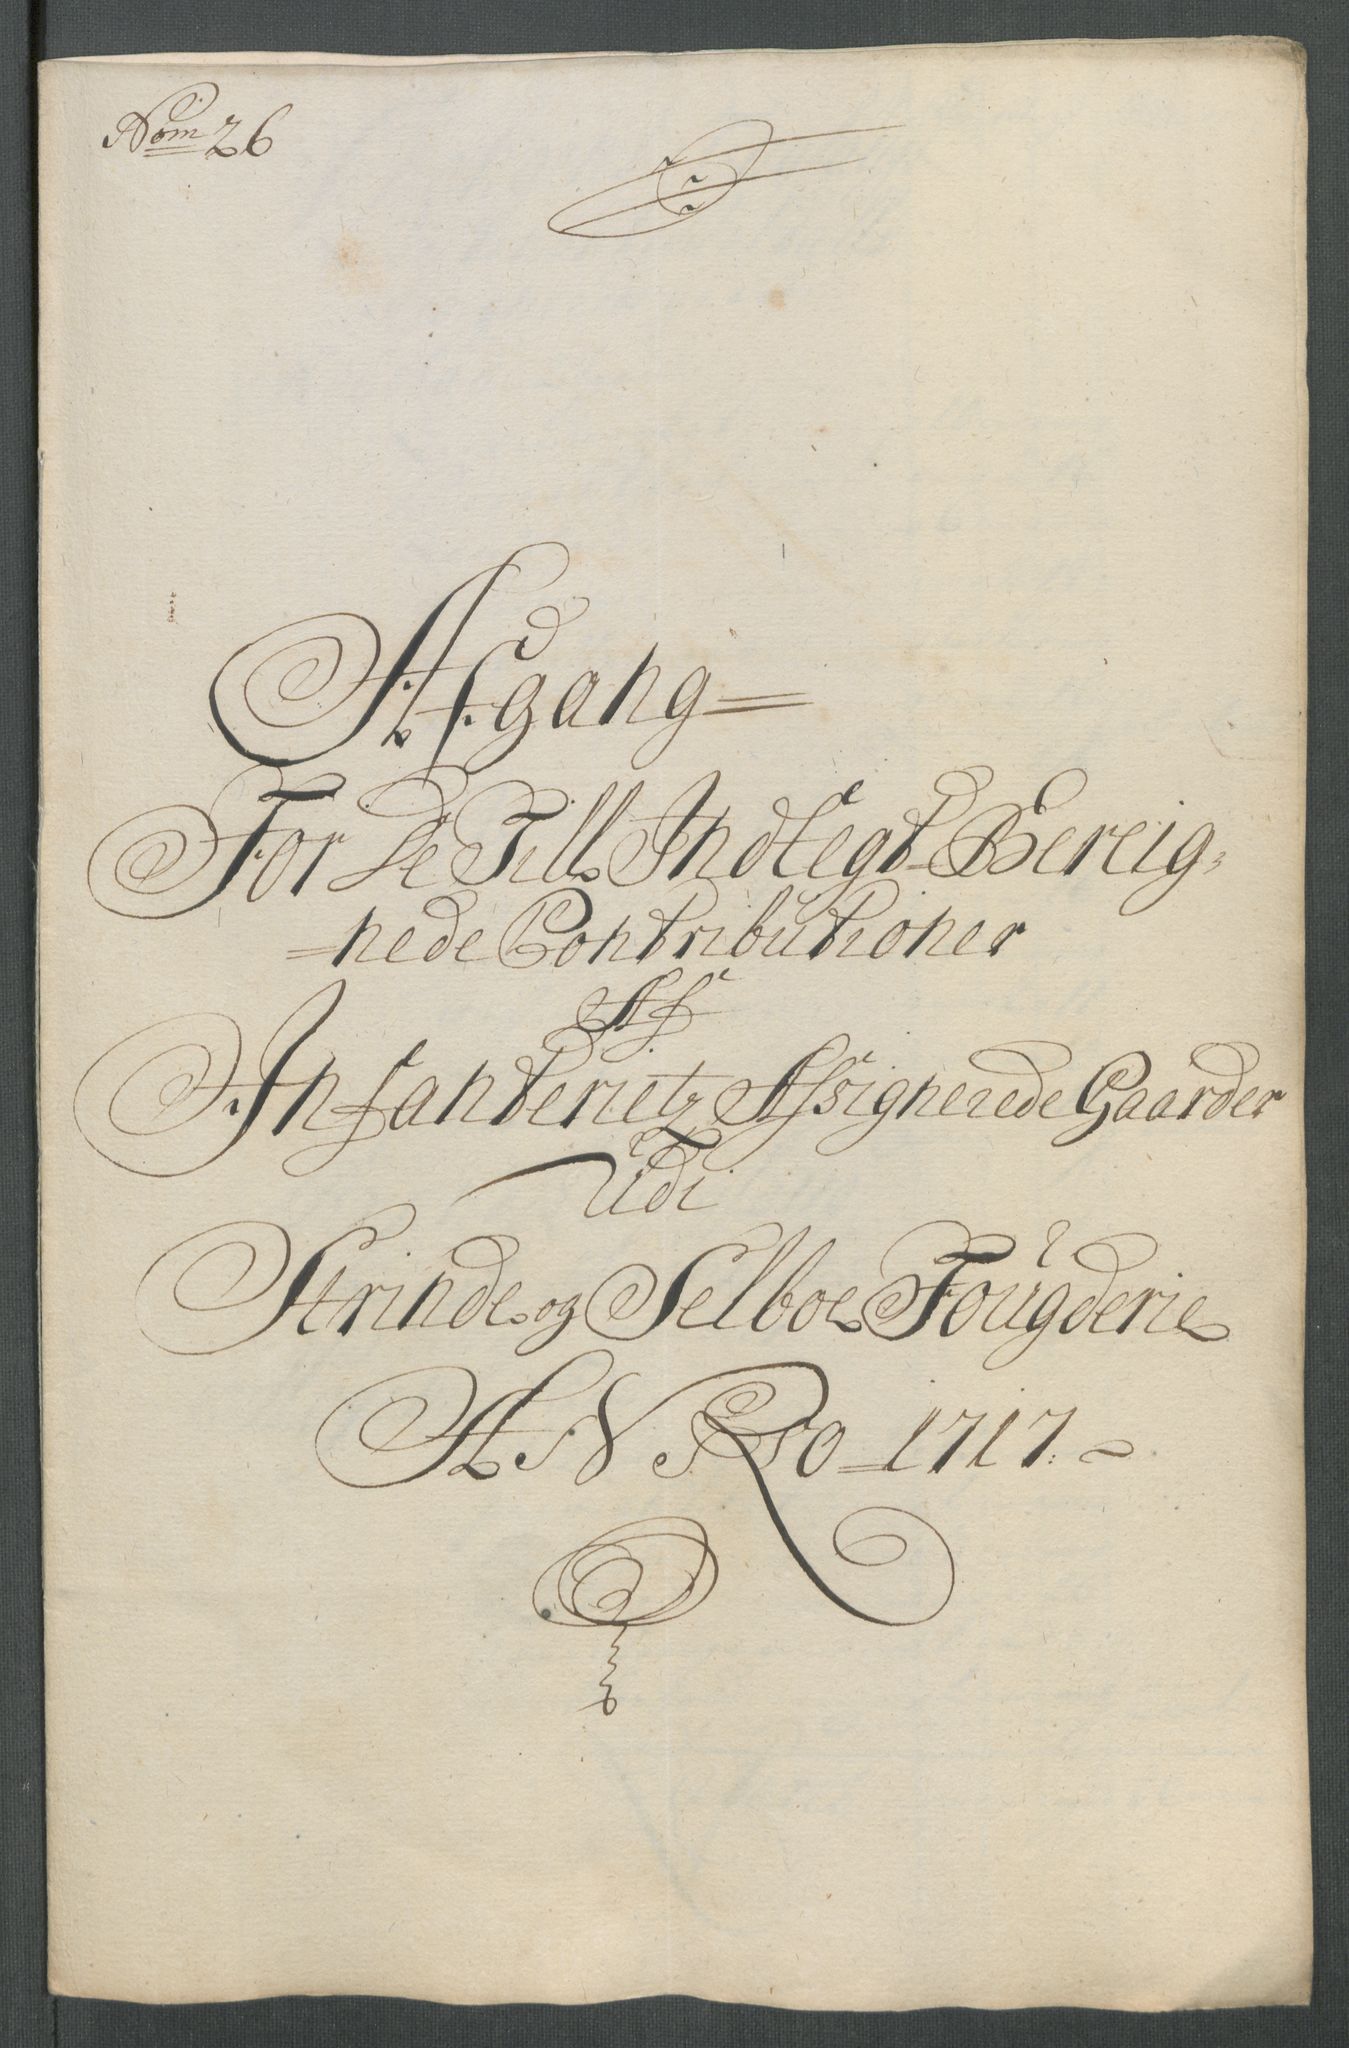 Nom 26
Afgang
For de Till Indtegt Bereig,
=nede Contributioner
Af
Infanterietz Assignerede Gaarder
Udi
Strinde og Selboe Fougderie
ANNO 1717.